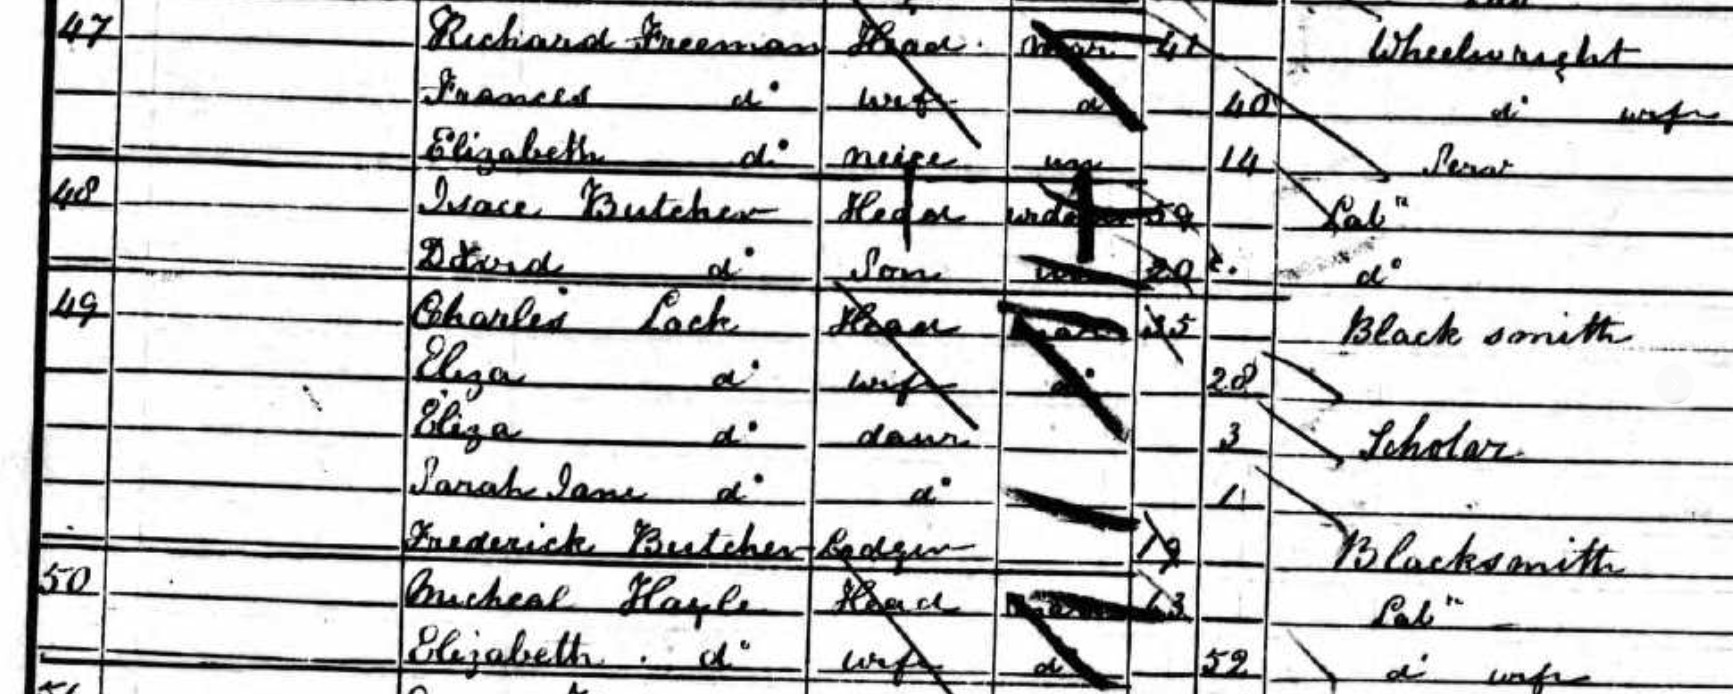 47 Richard Freeman Head mar 41 Wheelwright
Frances do wife do 40 do wife
Elizabeth do neice un 14 Serv
48 Isace Butcher Head widower 59 Labr
David do Son un 20 do
49 Charles Lack Head mar 35 Black smith
Eliza do wife do 28
Eliza do daur 3 Scholar
Sarah Jane do do 1
Frederick Butcher Lodger 19 Blacksmith
50 Micheal Hayle Head mar 63 Labr
Elizabeth do wife do 52 do wife